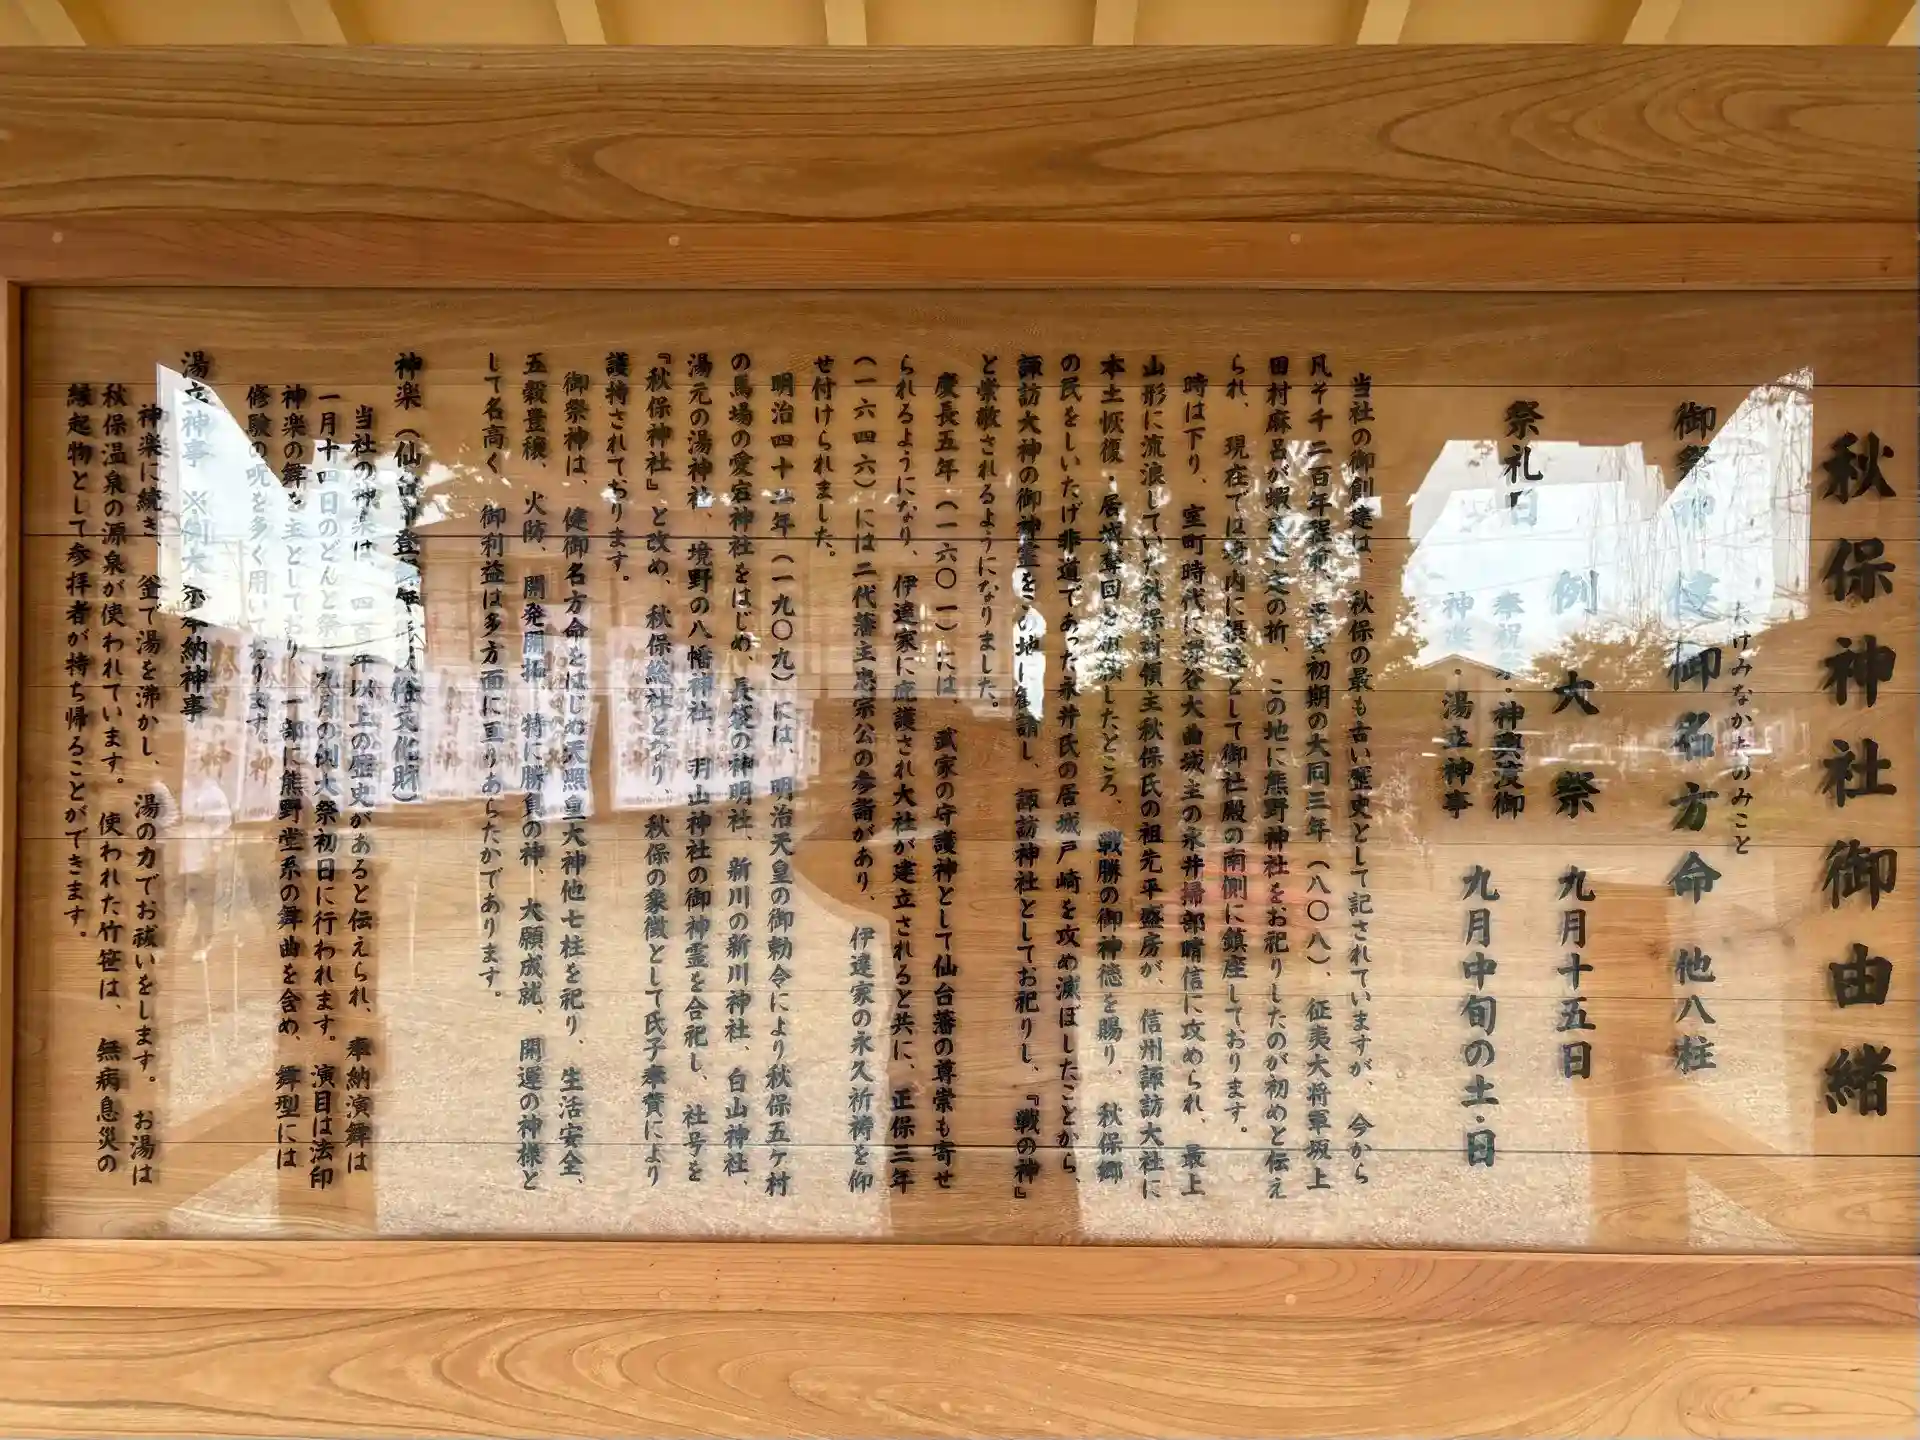 秋保神社御由緒
たけみなかたのみこと
御祭神 健御名方命 他八柱
祭礼日
例大祭 九月十五日
奉祝祭・神輿渡御
神楽・湯立神事 九月中旬の土・日
当社の御創建は、秋保の最も古い歴史として記されていますが、今から
凡そ千二百年程前、平安初期の大同三年（八〇八）、征夷大将軍坂上
田村麻呂が蝦夷 之の折、この地に熊野神社をお祀りしたのが初めと伝え
られ、現在では境内に摂社として御社殿の南側に鎮座しております。
時は下り、室町時代に深谷大曲城主の永井掃部晴信に攻められ、最上
山形に流浪していた秋保村領主秋保氏の祖先平盛房が、信州諏訪大社に
本土恢復・居城奪回を祈願したところ、戦勝の御神徳を賜り、秋保郷
の民をしいたげ非道であった永井氏の居城戸崎を攻め滅ぼしたことから、
諏訪大神の御神霊をこの地に勧請し、諏訪神社としてお祀りし、『戦の神』
と崇敬されるようになりました。
慶長五年（一六〇一）には、武家の守護神として仙台藩の尊崇も寄せ
られるようになり、伊達家に庇護され大社が建立されると共に、正保三年
（一六四六）には二代藩主忠宗公の参詣があり、伊達家の永久祈祷を仰
せ付けられました。
明治四十二年（一九〇九）には、明治天皇の御勅令により秋保五ケ村
の馬場の愛宕神社をはじめ、長袋の神明社、新川の新川神社、白山神社、
湯元の湯神社、境野の八幡神社、羽山神社の御神霊を合祀し、社号を
『秋保神社』と改め、秋保総社となり、秋保の象徴として氏子奉賛により
護持されております。
御祭神は、健御名方命をはじめ天照皇大神他七柱を祀り、生活安全、
五穀豊穣、火防、開発開拓、特に勝負の神、大願成就、開運の神様と
して名高く、御利益は多方面に亘りあらたかであります。
神楽（仙台市登録無形民俗文化財）
当社の神楽は、四百年以上の歴史があると伝えられ、奉納演舞は
一月十四日のどんと祭と九月の例大祭初日に行われます。演目は法印
神楽の舞を主としており、一部に熊野堂系の舞曲を含め、舞型には
修験の呪を多く用いております。
湯立神事 ※例大祭奉納神事
神楽に続き、釜で湯を沸かし、湯の力でお祓いをします。お湯は
秋保温泉の源泉が使われています。使われた竹笹は、無病息災の
縁起物として参拝者が持ち帰ることができます。